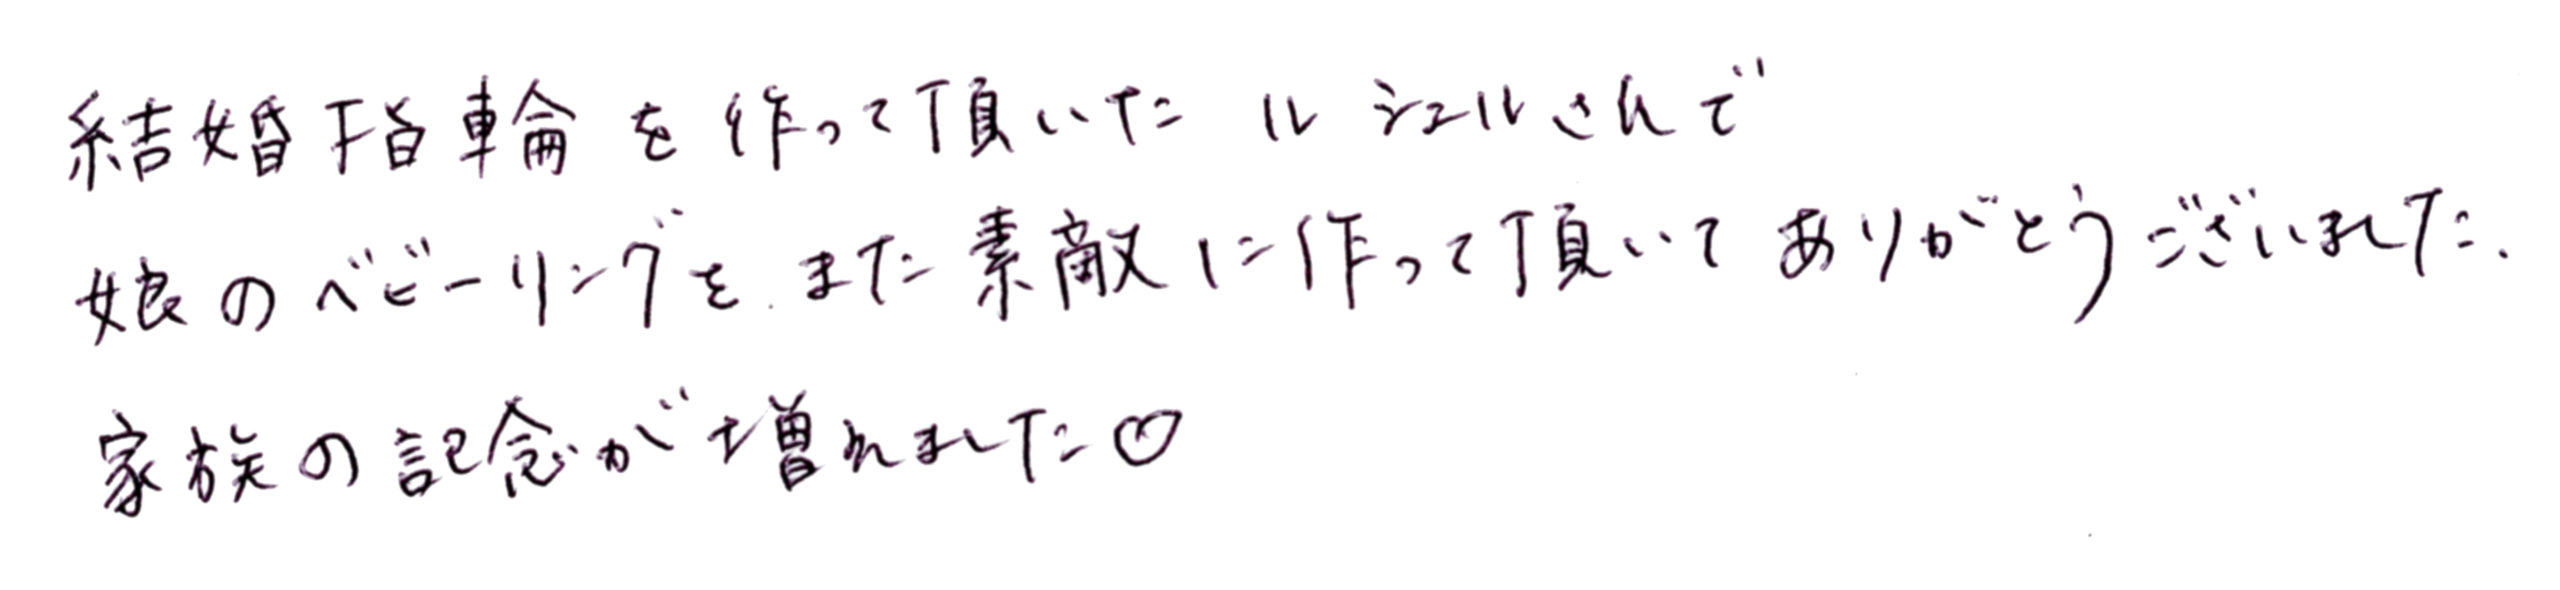 結婚指輪を作って頂いたルシエルさんで
娘のベビーリングを、また素敵に作って頂いてありがとうございました.
家族の記念が増れました♡